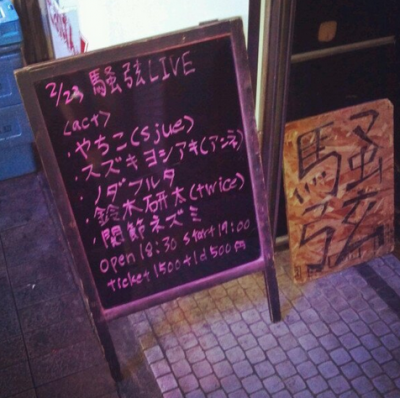 2/23 騒弦LIVE
<act>
・やちこ(sjue)
・スズキヨシアキ(アンネ)
・ノダフルタ
・鈴木研太(twice)
・関節ネズミ
open 18:30 start 19:00
ticket 1500+1d 500円
騒
弦